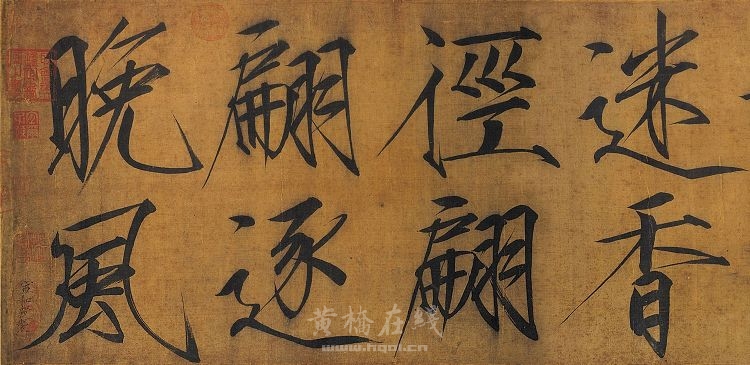 迷香
徑翩
翩逐
晚風
黄橋在线
www.hqol.cn